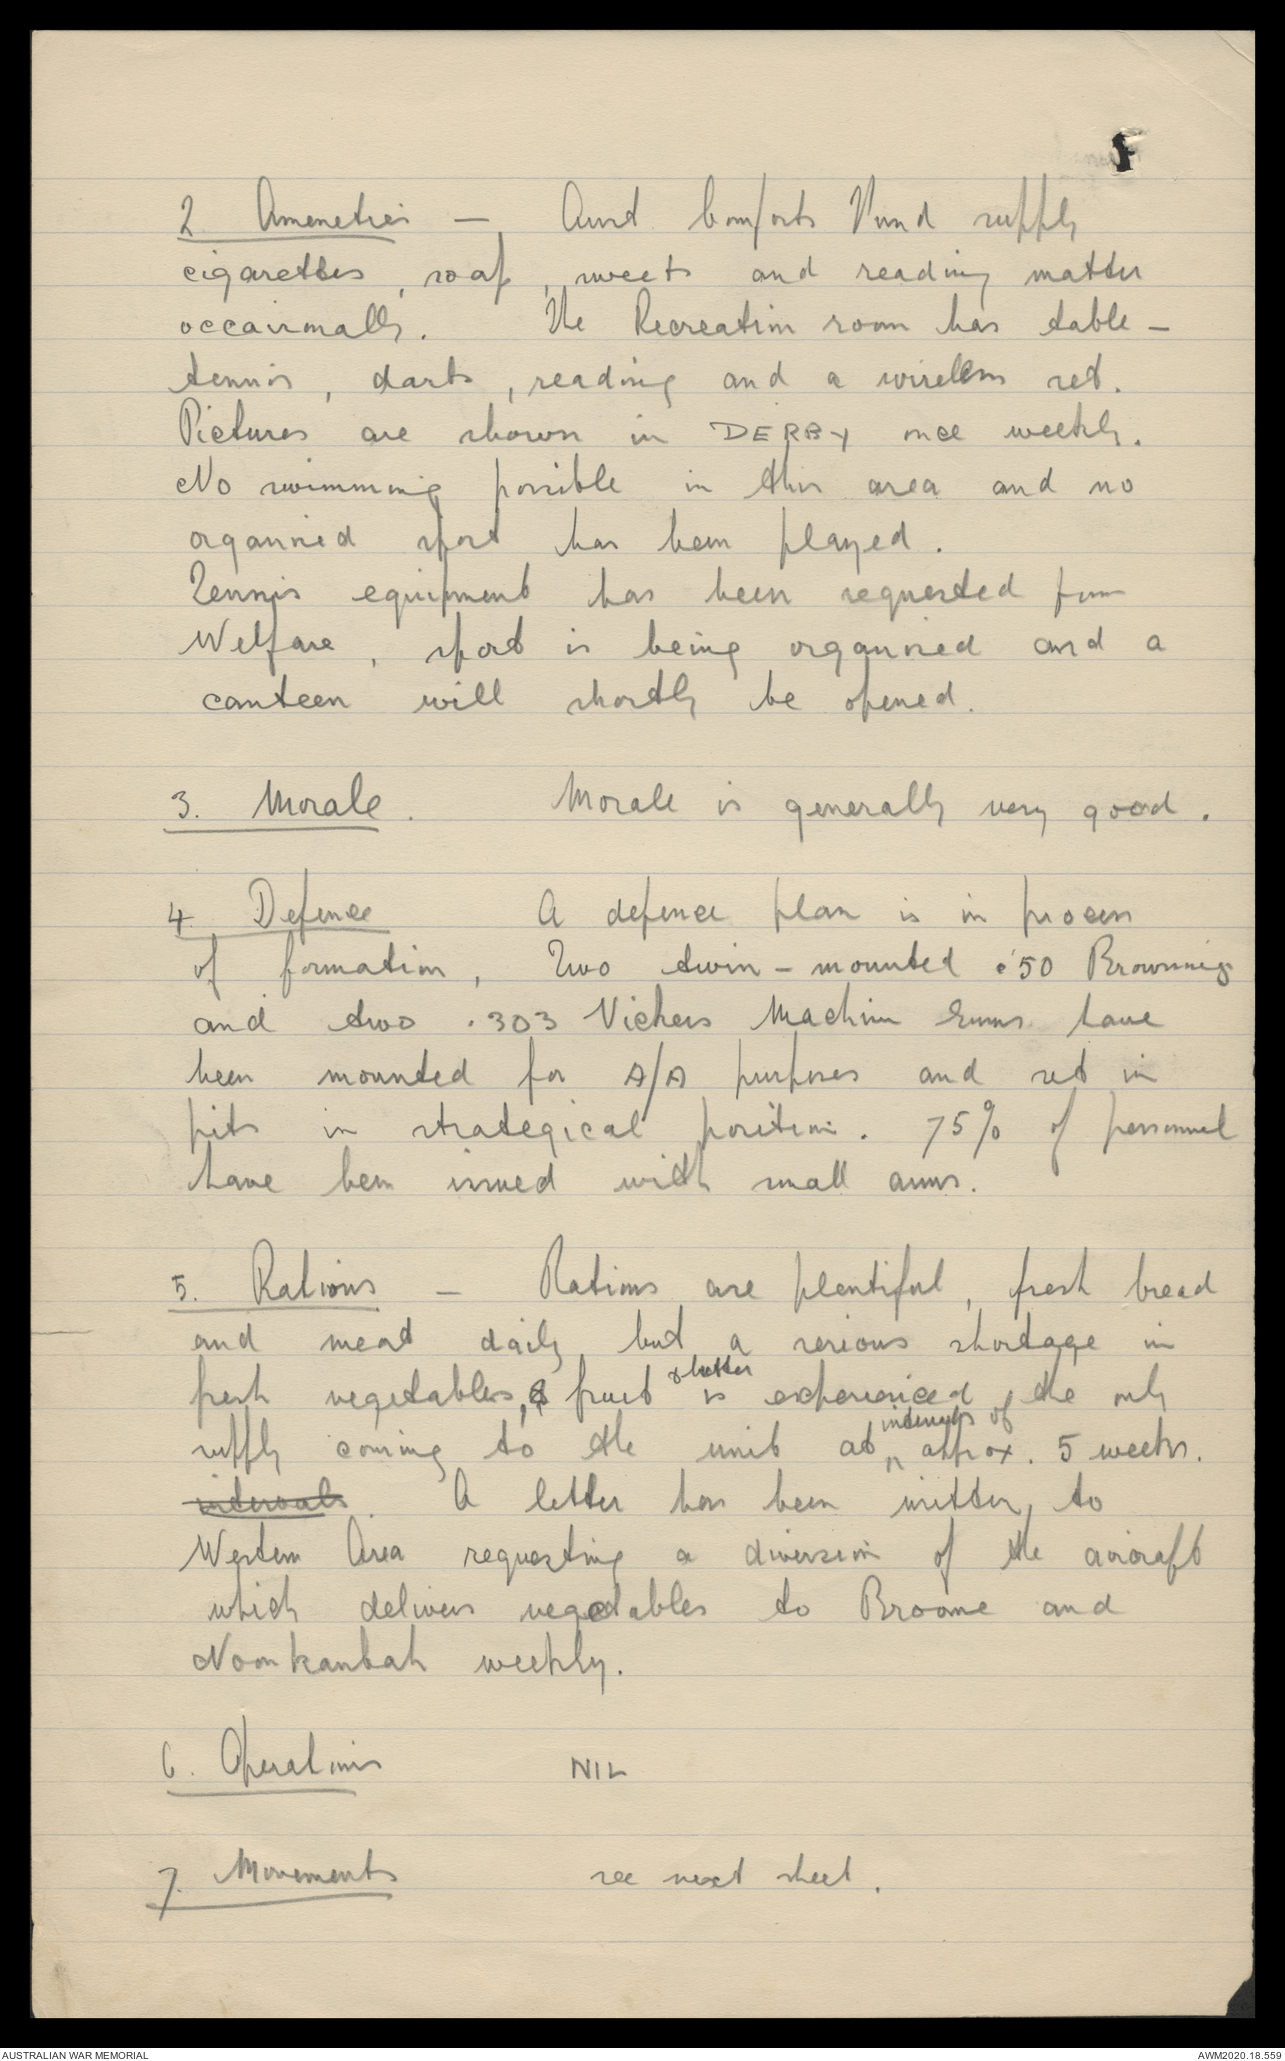 2 Ameneties - Aust Comforts Fund supply
cigarettes, soap, sweets and reading matter
occasionally. The Recreation room has table-
tennis, darts, reading and a wireless set.
Pictures are shown in DERBY once weekly.
No swimming possible in this area and no
organised sport has been played.
Tennis equipment has been requested from
Welfare, sport is being organised and a
canteen will shortly be opened.
3. Morale. Morale is generally very good.
4. Defence A defence plan is in process
of formation, Two twin-mounted .50 Brownings
and two .303 Vickers Machine Guns have
been mounted for A/A purposes and set in
pits in strategical position. 75% of personnel
have been issued with small arms.
5. Rations - Rations are plentiful, fresh bread
and meat daily but a serious shortage in
fresh vegetables, & fruit & butter is experienced, the only
supply coming to the unit at intervals of approx. 5 weeks.
intervals. A letter has been written to
Western Area requesting a diversion of the aircraft
which delivers vegetables to Broome and
Noonkanbah weekly.
6. Operations NIL
7. Movements see next sheet.
AUSTRALIAN WAR MEMORIAL
AWM2020.18.559